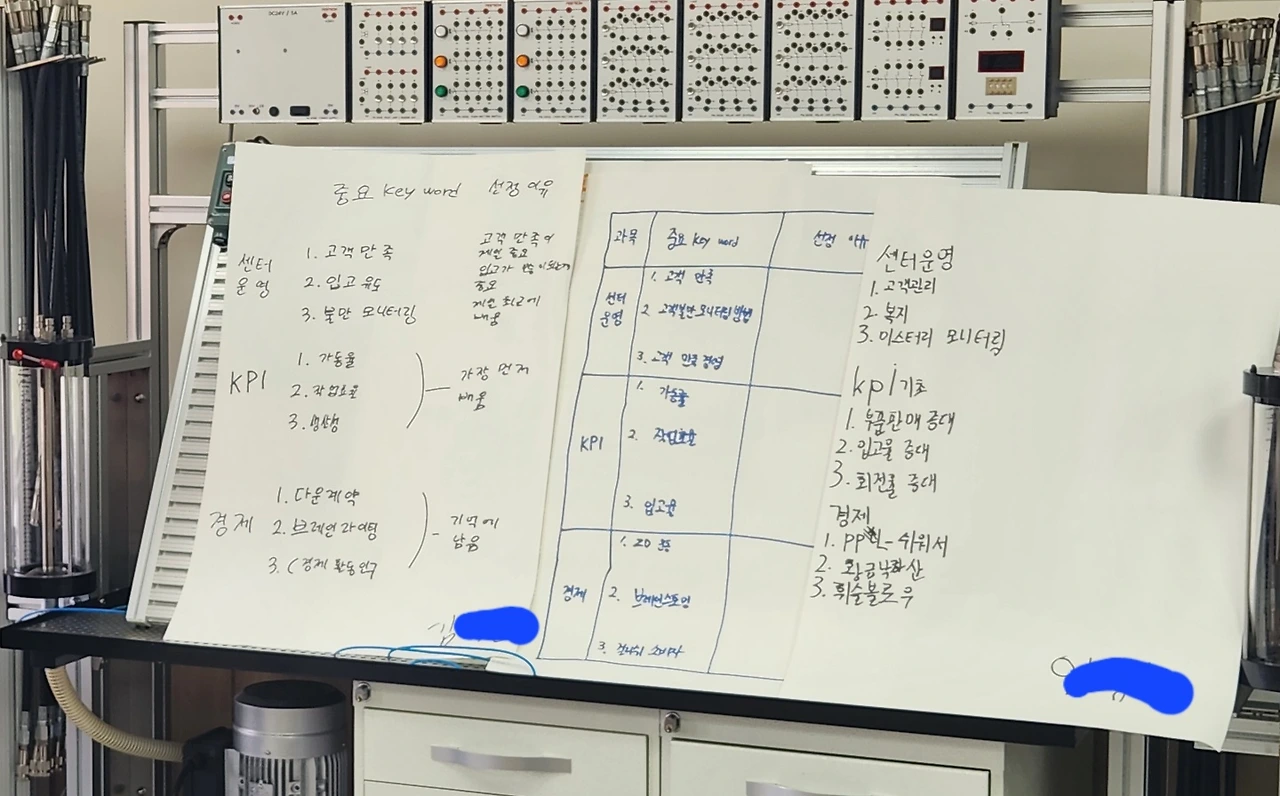 DC24V / 5A
중요 Key word 선정 이유
센터 운영
1. 고객 만족
2. 입고 유도
3. 불만 모니터링
고객 만족이
제일 중요
입고가
중요
제일 최근에
배움
KPI
1. 가동율
2. 작업효율
3. 생산성
가장 먼저
배움
경제
1. 다운계약
2. 브레인라이팅
3. ( 경제 활동인구
기억에
남음
과목 중요 key word 선정 이유
센터 운영
1. 고객 만족
2. 고객불만 모니터링 방법
3. 고객 만족 경영
KPI
1. 가동률
2. 작업효율
3. 입고율
경제
1. ZD 운동
2. 브레인스토밍
3. 소비자
센터운영
1. 고객관리
2. 복지
3. 미스터리 모니터링
kpi 기초
1. 부품판매 증대
2. 입고율 증대
3. 회전률 증대
경제
1. PPL-쉬워서
2. 황금낙하산
3. 휘슬블로우